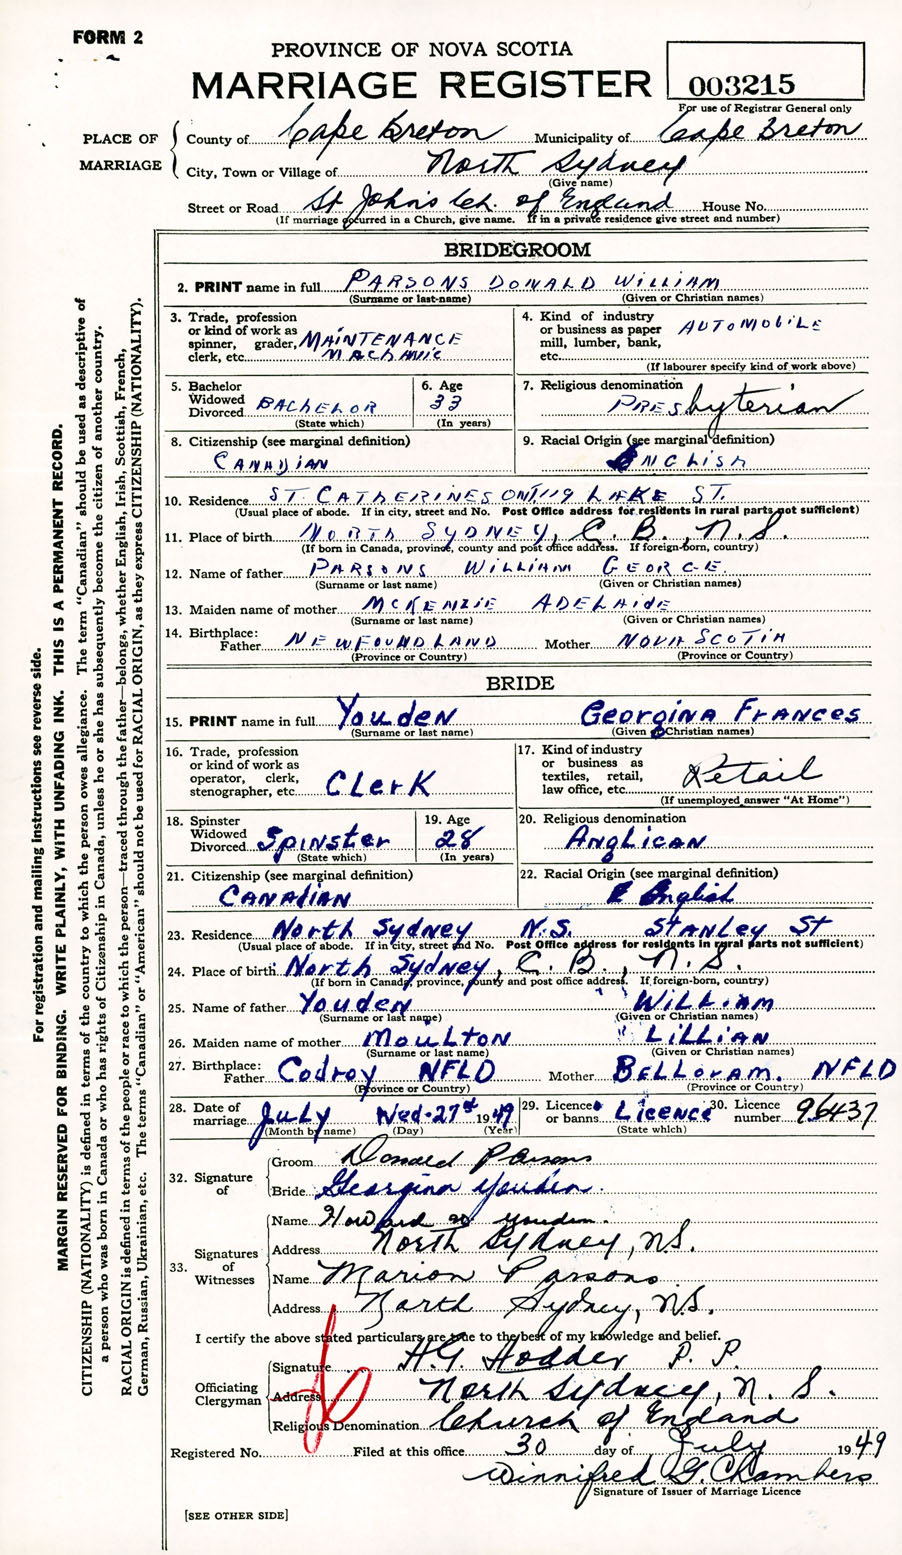 FORM 2
PROVINCE OF NOVA SCOTIA
MARRIAGE REGISTER
003215
For use of Registrar General only
PLACE OF MARRIAGE
County of Cape Breton Municipality of Cape Breton
City, Town or Village of North Sydney
(Give name)
Street or Road St John's Ch. of England House No.
(If marriage occurred in a Church, give name. If in a private residence give street and number)
BRIDEGROOM
2. PRINT name in full PARSONS DONALD WILLIAM
(Surname or last-name) (Given or Christian names)
3. Trade, profession or kind of work as spinner, grader, clerk, etc. MAINTENANCE MACHANIC
4. Kind of industry or business as paper mill, lumber, bank, etc. AUTOMOBILE
(If labourer specify kind of work above)
5. Bachelor Widowed Divorced BACHELOR
(State which)
6. Age 33
(In years)
7. Religious denomination PRESbyterian
8. Citizenship (see marginal definition) CANADIAN
9. Racial Origin (see marginal definition) ENGLISH
10. Residence ST. CATHERINES ONT 119 LAKE ST.
(Usual place of abode. If in city, street and No. Post Office address for residents in rural parts not sufficient)
11. Place of birth NORTH SYDNEY, C. B., N. S.
(If born in Canada, province, county and post office address. If foreign-born, country)
12. Name of father PARSONS WILLIAM GEORGE
(Surname or last name) (Given or Christian names)
13. Maiden name of mother MCKENZIE ADELAIDE
(Surname or last name) (Given or Christian names)
14. Birthplace: Father NEWFOUNDLAND Mother NOVA SCOTIA
(Province or Country) (Province or Country)
BRIDE
15. PRINT name in full Youden Georgina Frances
(Surname or last name) (Given or Christian names)
16. Trade, profession or kind of work as operator, clerk, stenographer, etc. Clerk
17. Kind of industry or business as textiles, retail, law office, etc. Retail
(If unemployed answer "At Home")
18. Spinster Widowed Divorced Spinster
(State which)
19. Age 28
(In years)
20. Religious denomination Anglican
21. Citizenship (see marginal definition) CANADIAN
22. Racial Origin (see marginal definition) English
23. Residence North Sydney N.S. Stanley St
(Usual place of abode. If in city, street and No. Post Office address for residents in rural parts not sufficient)
24. Place of birth North Sydney, C. B., N. S.
(If born in Canada, province, county and post office address. If foreign-born, country)
25. Name of father Youden William
(Surname or last name) (Given or Christian names)
26. Maiden name of mother Moulton Lillian
(Surname or last name) (Given or Christian names)
27. Birthplace: Father Codroy NFLD Mother Belloram. NFLD
(Province or Country) (Province or Country)
28. Date of marriage July Wed. 27th 1949
(Month by name) (Day) (Year)
29. Licence or banns Licence
(State which)
30. Licence number 96437
32. Signature of
Groom Donald Parsons
Bride Georgina Youden.
33. Signatures of Witnesses
Name Howard Youden.
Address North Sydney, N.S.
Name Marion Parsons
Address North Sydney, N.S.
I certify the above stated particulars are true to the best of my knowledge and belief.
Officiating Clergyman
Signature H.G. Hodder P. P.
Address North Sydney, N. S.
Religious Denomination Church of England
Registered No. Filed at this office 30 day of July 1949
Winnifred G. Chambers
Signature of Issuer of Marriage Licence
[SEE OTHER SIDE]
For registration and mailing instructions see reverse side.
MARGIN RESERVED FOR BINDING. WRITE PLAINLY, WITH UNFADING INK. THIS IS A PERMANENT RECORD.
CITIZENSHIP (NATIONALITY) is defined in terms of the country to which the person owes allegiance. The term "Canadian" should be used as descriptive of
a person who was born in Canada or who has rights of Citizenship in Canada, unless he or she has subsequently become the citizen of another country.
RACIAL ORIGIN is defined in terms of the people or race to which the person—traced through the father—belongs, whether English, Irish, Scottish, French,
German, Russian, Ukrainian, etc. The terms "Canadian" or "American" should not be used for RACIAL ORIGIN, as they express CITIZENSHIP (NATIONALITY).